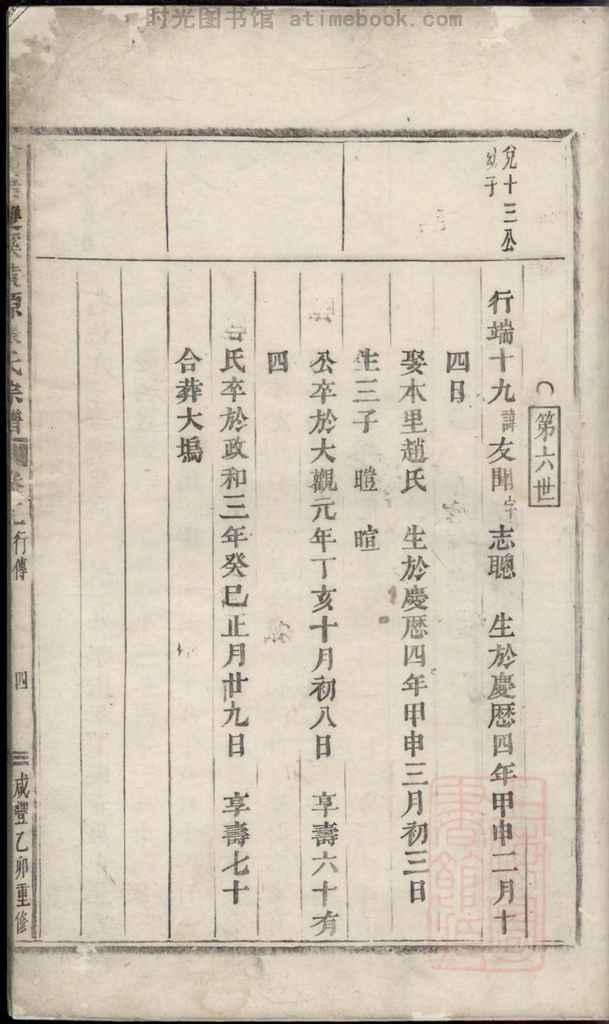 时光图书馆 atimebook.com
第六世
兌十三公
幼子
行端十九 諱友聞 字志聰 生於慶歷四年甲申二月十
四日
娶本里趙氏 生於慶歷四年甲申三月初三日
生三子 暟 暄
公卒於大觀元年丁亥十月初八日 享壽六十有
四
氏卒於政和三年癸巳正月廿九日 享壽七十
合葬大塢
源 氏宗譜 行傳 四 咸豐乙卯重修